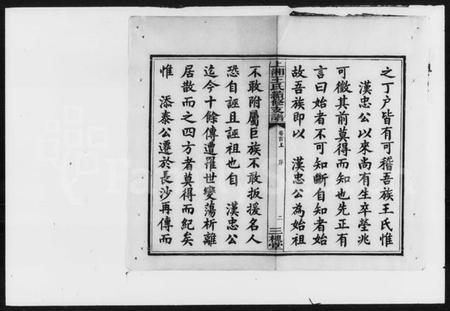 之丁戶皆有可稽吾族王氏惟
漢忠公以來尚有生卒塋兆
可徵其前莫得而知也先正有
言曰始者不可知斷自知者始
故吾族即以 漢忠公為始祖
上湘王氏續修支譜
卷首五 序
二
三槐堂
不敢附屬巨族不敢扳援名人
恐自誣且誣祖也自 漢忠公
迄今十餘傳遭罹世變蕩析離
居散而之四方者莫得而紀矣
惟 添泰公遷於長沙再傳而